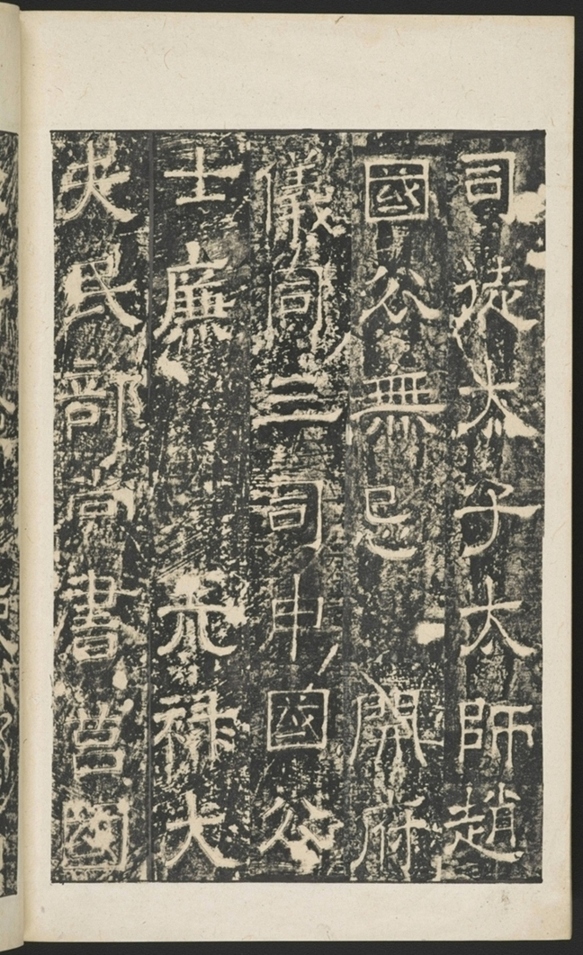 司徒太子太師趙
國公無忌 開府
儀同三司申國公
士廉 光祿大
夫民部尚書莒國